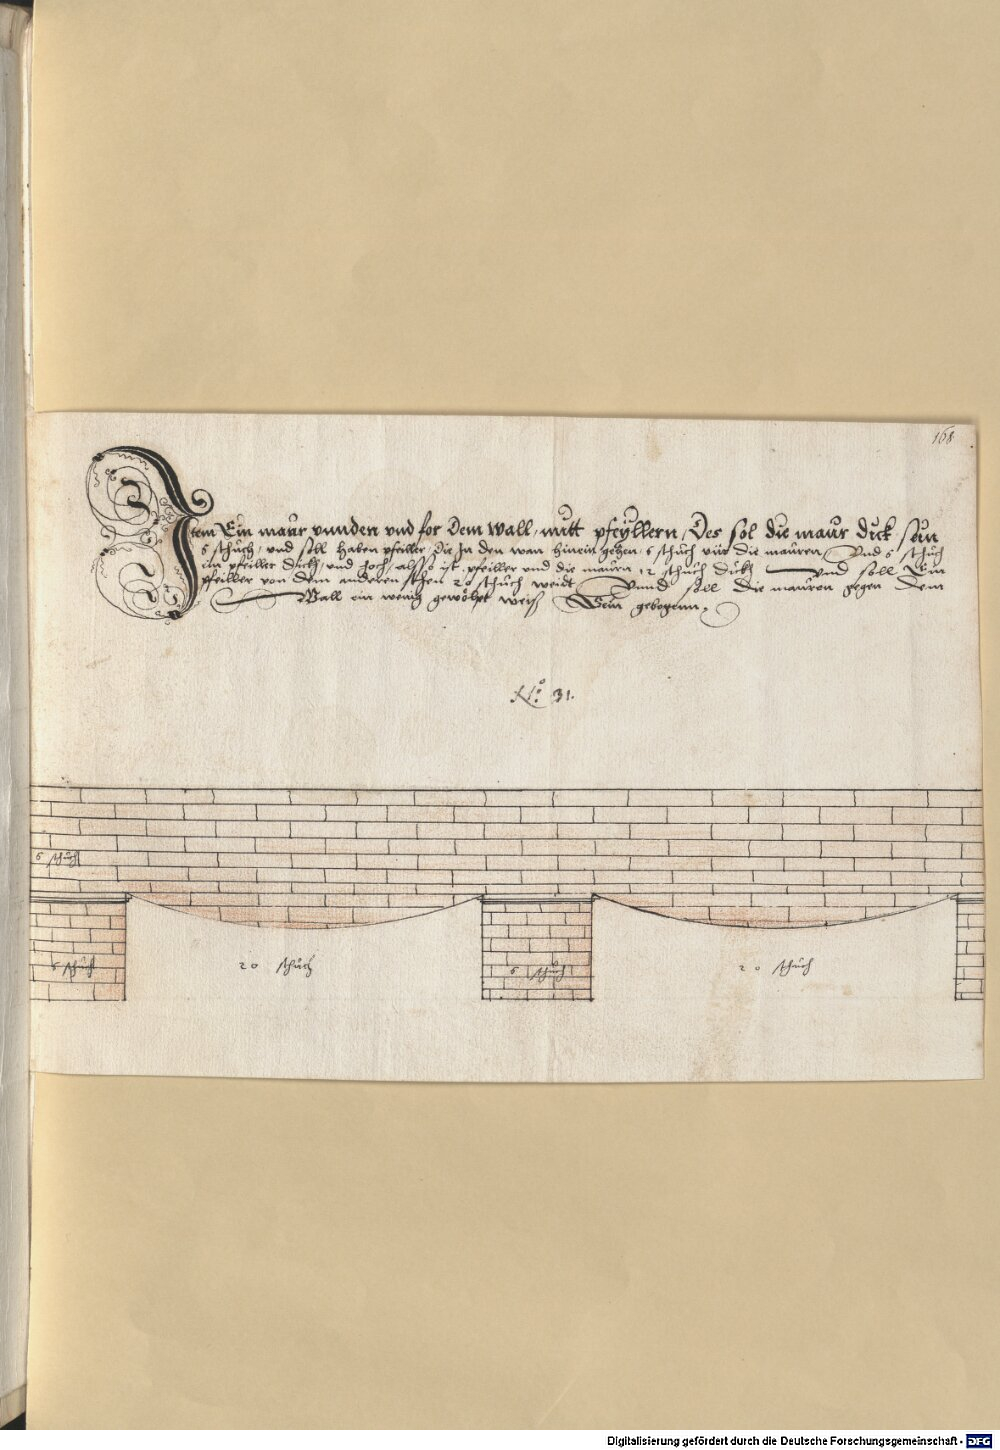 168
Jtem Ein maur vnnden vnd for dem wall, mitt pfeyllern, Des sol die maur dick sein
6 schuch, vnd soll haben pfeiller, die In den wan hinein gehen, 6 schuch vür die mauren, Vnd 6 schuch
ein pfeiller dickh, vnd hoch, also ist pfeiller vnd die mauren 12 schuch dickh vnd soll Ein
pfeiller von dem anderen sthen 20 schuch weidt Vnnd soll die mauren gegen dem
Wall ein wenig gewölpt weiß Sein gebogenn.
No: 31.
6 schuch
6 schuch
20 schuch
6 schuch
20 schuch
Digitalisierung gefördert durch die Deutsche Forschungsgemeinschaft - DFG